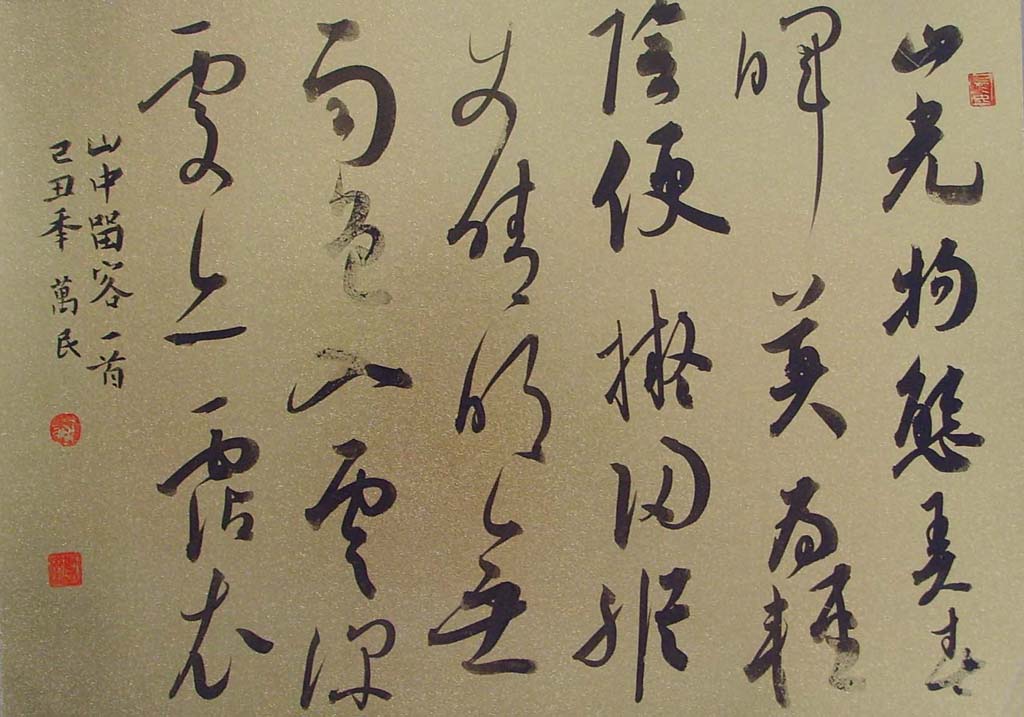 山光物態弄春
暉莫為輕
陰便擬歸縱
使晴明無
雨色入雲深
處亦霑衣
山中留客一首
己丑秊 萬民